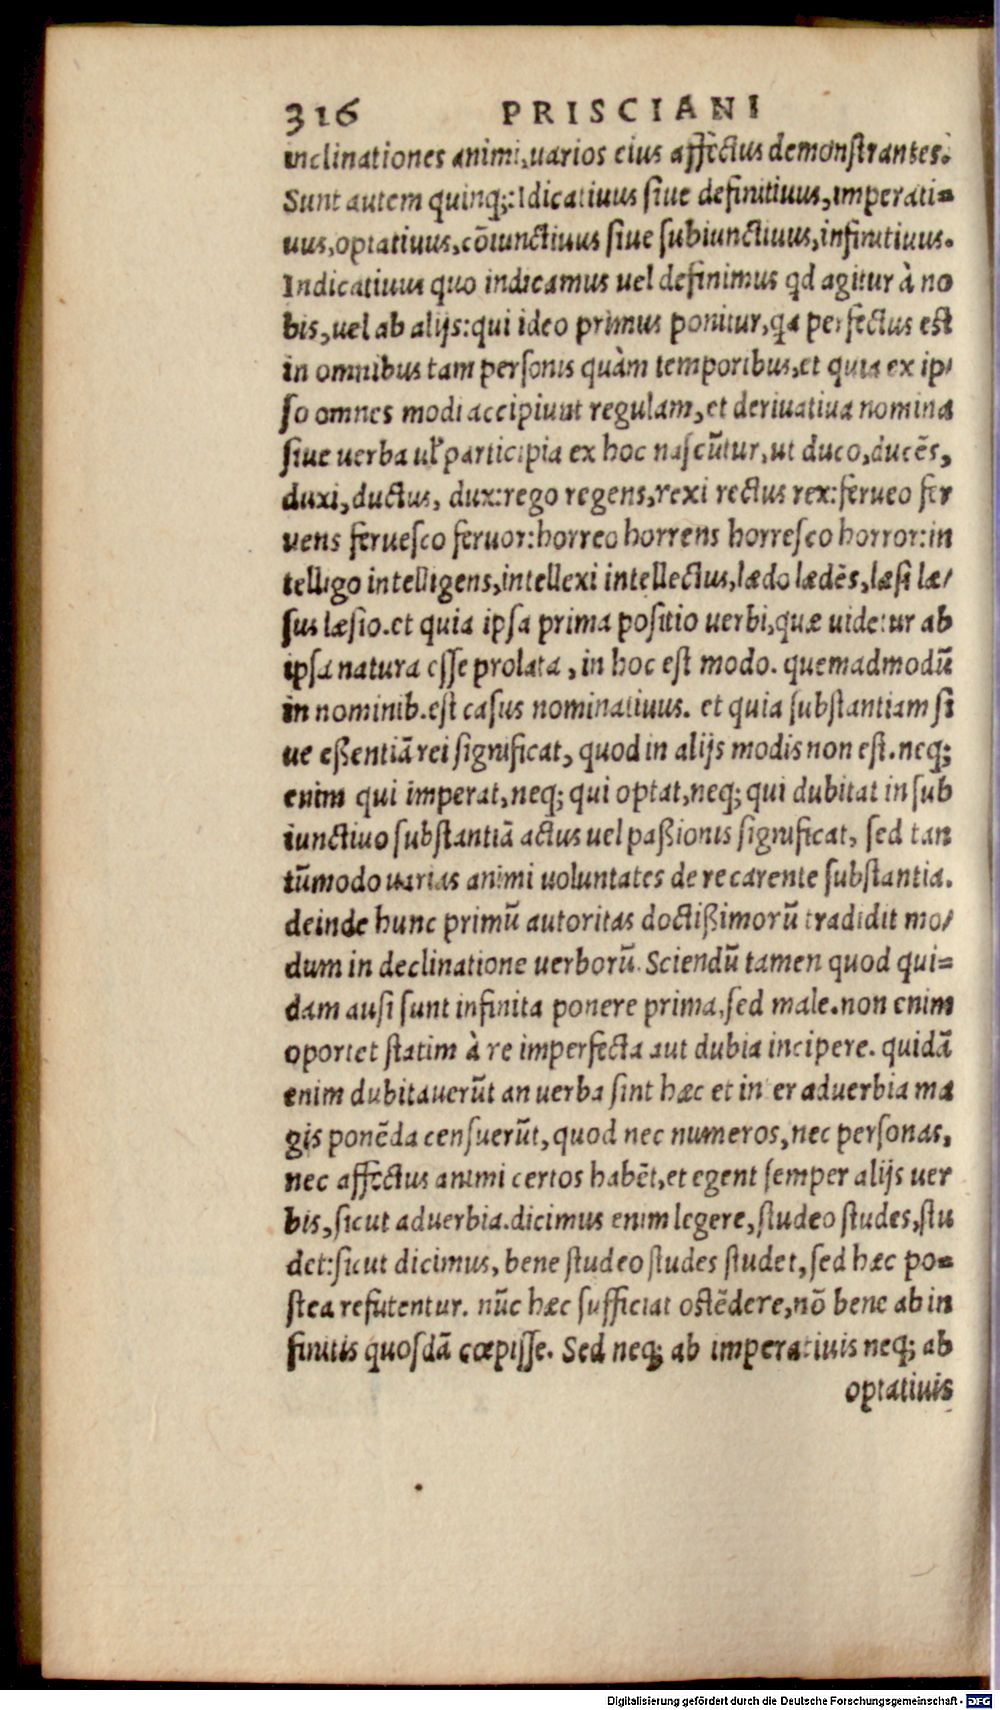 316 PRISCIANI
inclinationes animi, uarios eius affectus demonstrantes.
Sunt autem quinq;: Idicatiuus siue definitiuus, imperati=
uus, optatiuus, cõiunctiuus siue subiunctiuus, infinitiuus.
Indicatiuus quo indicamus uel definimus qd agitur à no
bis, uel ab alijs: qui ideo primus ponitur, qa perfectus est
in omnibus tam personis quàm temporibus, et quia ex ip/
so omnes modi accipiunt regulam, et deriuatiua nomina
siue uerba ul' participia ex hoc nascũtur, ut duco, ducẽs,
duxi, ductus, dux: rego regens, rexi rectus rex: ferueo fer
uens feruesco feruor: horreo horrens horresco horror: in
telligo intelligens, intellexi intellectus, lædo lædẽs, læsi læ/
sus læsio. et quia ipsa prima positio uerbi, quæ uidetur ab
ipsa natura esse prolata, in hoc est modo. quemadmodũ
in nominib. est casus nominatiuus. et quia substantiam si
ue eßentiã rei significat, quod in alijs modis non est. neq;
enim qui imperat, neq; qui optat, neq; qui dubitat in sub
iunctiuo substantiã actus uel paßionis significat, sed tan
tũmodo uarias animi uoluntates de re carente substantia.
deinde hunc primũ autoritas doctißimorũ tradidit mo/
dum in declinatione uerborũ. Sciendũ tamen quod qui=
dam ausi sunt infinita ponere prima, sed male. non enim
oportet statim à re imperfecta aut dubia incipere. quidã
enim dubitauerũt an uerba sint hæc et inter aduerbia ma
gis ponẽda censuerũt, quod nec numeros, nec personas,
nec affectus animi certos habẽt, et egent semper alijs uer
bis, sicut aduerbia. dicimus enim legere, studeo studes, stu
det: sicut dicimus, bene studeo studes studet, sed hæc po=
stea refutentur. nũc hæc sufficiat ostẽdere, nõ bene ab in
finitis quosdã cœpisse. Sed neq; ab imperatiuis neq; ab
optatiuis
Digitalisierung gefördert durch die Deutsche Forschungsgemeinschaft - DFG